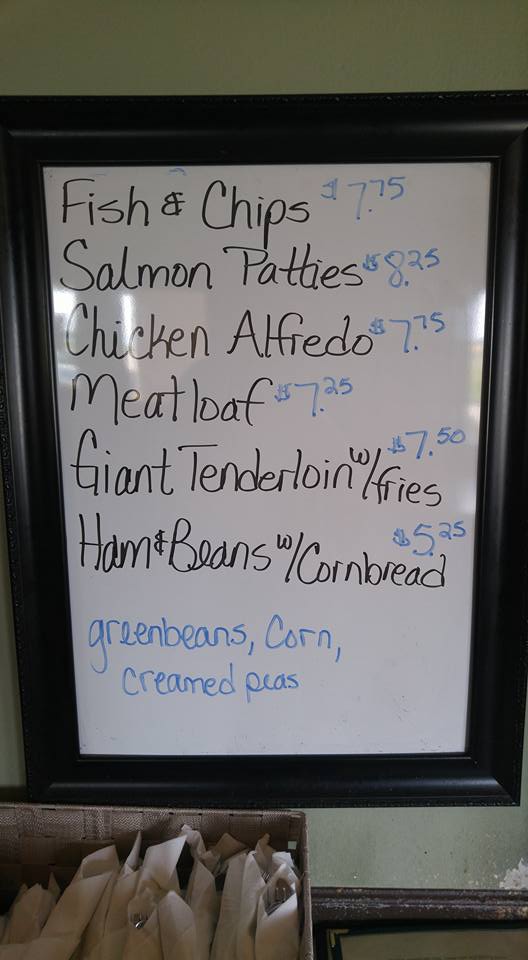 Fish & Chips $7.75
Salmon Patties $8.25
Chicken Alfredo $7.75
Meatloaf $7.25
Giant Tenderloin w/fries $7.50
Ham & Beans w/Cornbread $5.25
greenbeans, Corn,
creamed peas